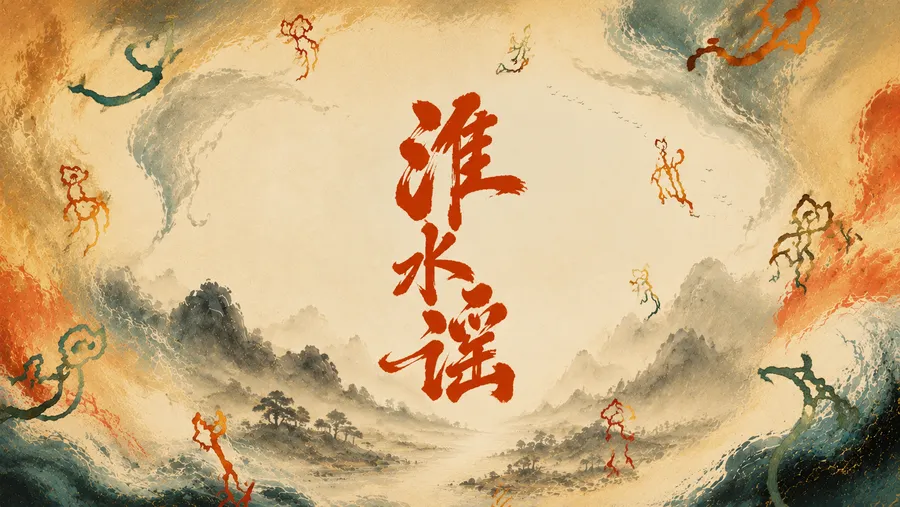 淮水谣